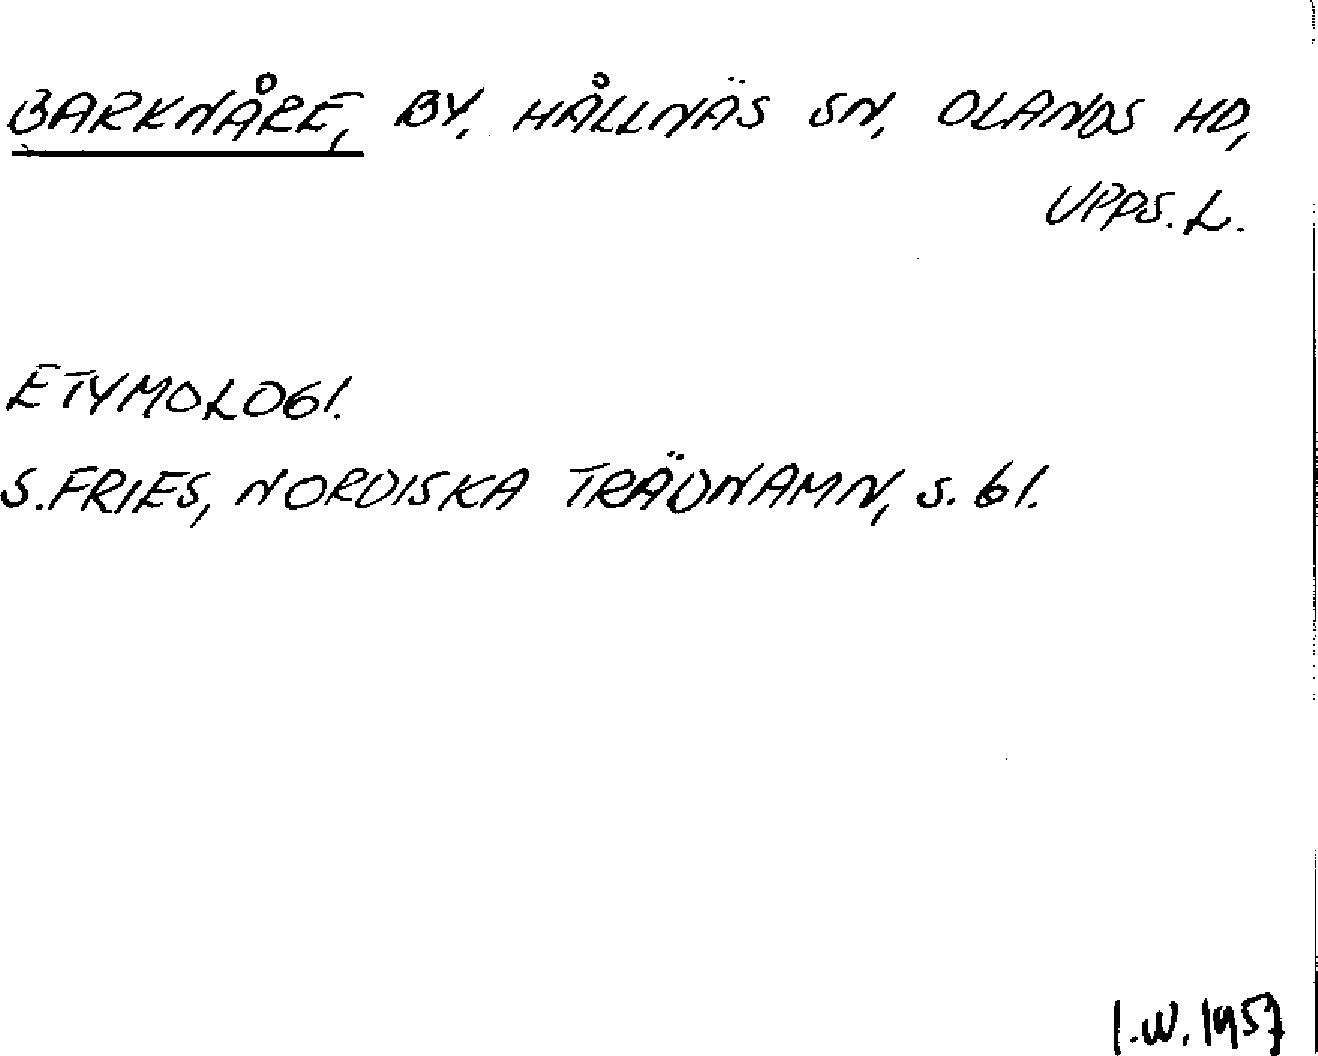 BARKNÅRE, BY, HÅLLNÄS SN, OLANDS HD,
UPPS. L.
ETYMOLOGI.
S. FRIES, NORDISKA TRÄDNAMN, S. 61.
I.W. 1957